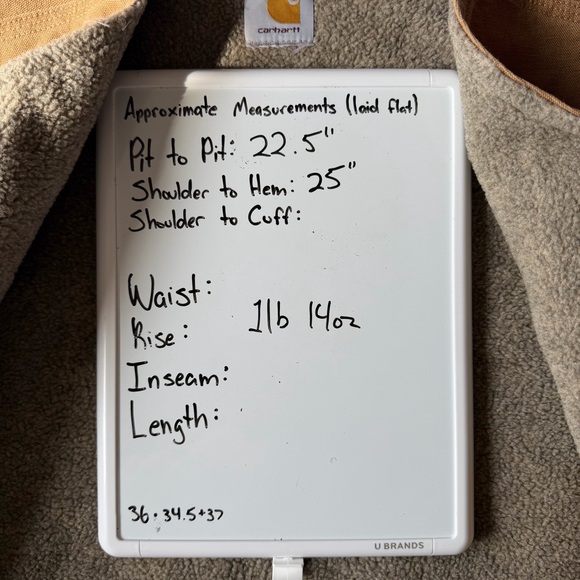 carhartt
Approximate Measurements (laid flat)
Pit to Pit: 22.5"
Shoulder to Hem: 25"
Shoulder to Cuff:
Waist:
Rise: 1lb 14oz
Inseam:
Length:
36 · 34.5 + 37
U BRANDS